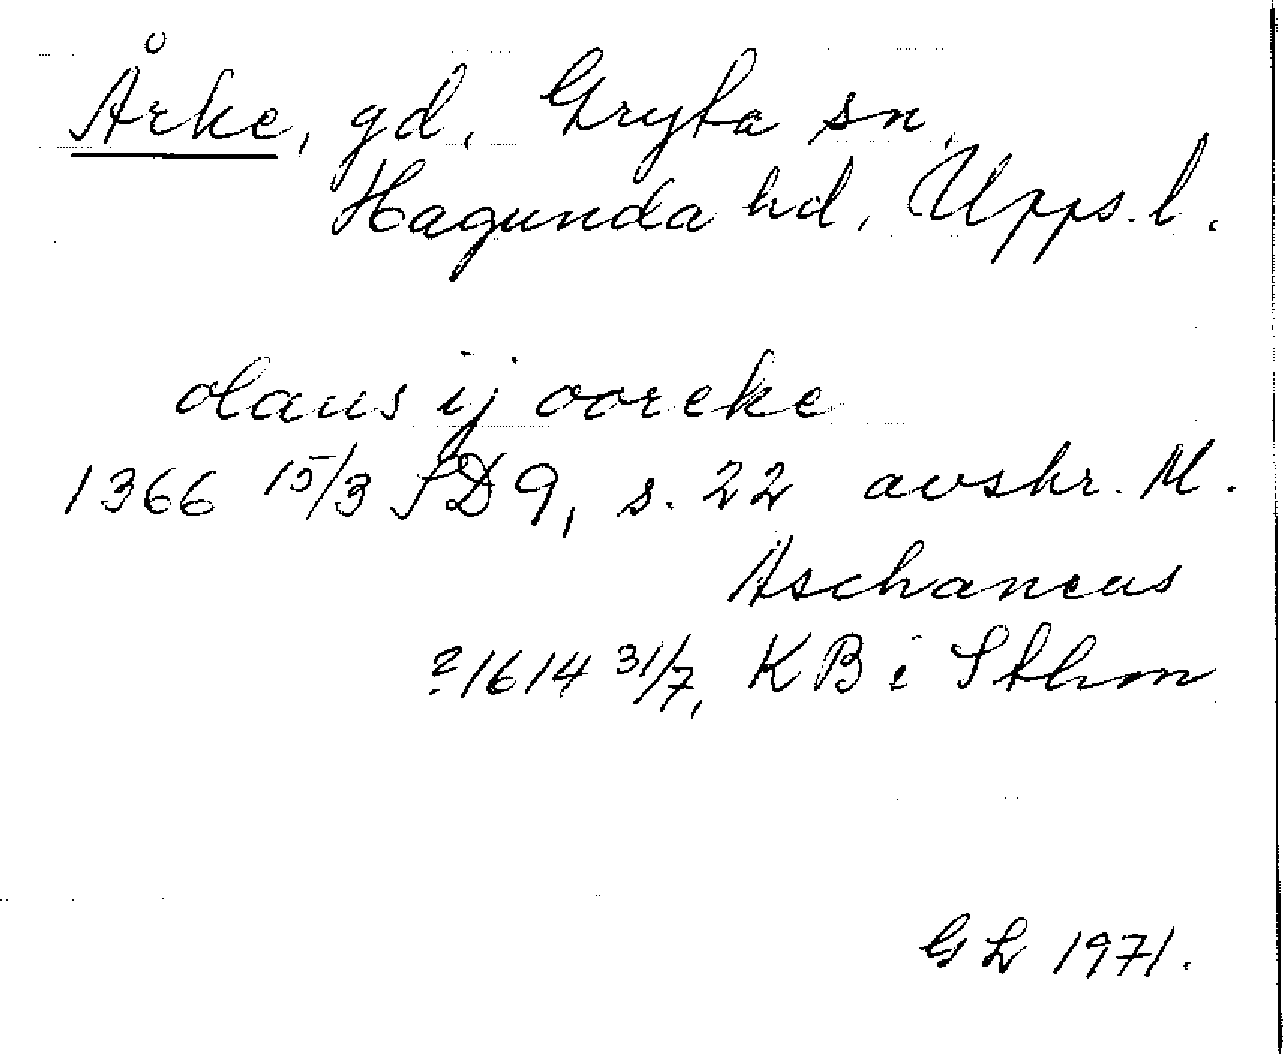 Årke, gd, Gryta sn,
Hagunda hd, Upps. l.
olaus ij ooreke
1366 15/3 SD 9, s. 22 avskr. M.
Aschaneus
?1614 31/7, KB i Sthm
GL 1971.